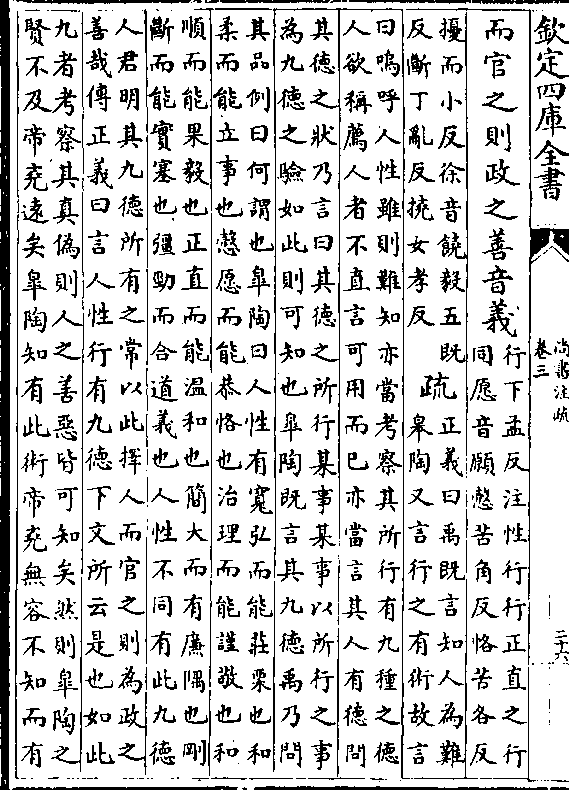 欽定四庫全書
尚書注疏
卷三
二十六
而官之則政之善音義
行下孟反注性行行正直之行
同愿音願慤苦角反恪苦各反
擾而小反徐音饒毅五既
反斷丁亂反撓女孝反
疏
正義曰禹既言知人為難
臯陶又言行之有術故言
曰嗚呼人性雖則難知亦當考察其所行有九種之德
人欲稱薦人者不直言可用而已亦當言其人有德問
其德之狀乃言曰其德之所行某事某事以所行之事
為九德之驗如此則可知也臯陶既言其九德禹乃問
其品例曰何謂也臯陶曰人性有寬弘而能莊栗也和
柔而能立事也慤愿而能恭恪也治理而能謹敬也和
順而能果毅也正直而能温和也簡大而有廉隅也剛
斷而能實塞也彊勁而合道義也人性不同有此九德
人君明其九德所有之常以此擇人而官之則為政之
善哉傳正義曰言人性行有九德下文所云是也如此
九者考察其真偽則人之善惡皆可知矣然則臯陶之
賢不及帝堯遠矣臯陶知有此術帝堯無容不知而有